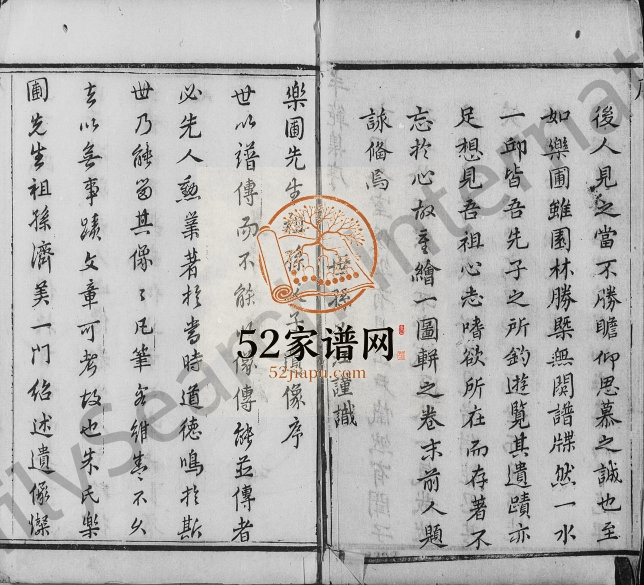 後人見之當不勝瞻仰思慕之誠也至
如樂圃雖園林勝槩無関譜牒然一水
一邱皆吾先子之所釣遊覽其遺蹟亦
足想見吾祖心志嗜欲所在而存著不
忘於心故重繪一圖輧之卷末前人題
詠偹焉
孫 謹識
樂圃先生 孫 子 像序
世以譜傳而不能 像傳能並傳者
必先人勲業著於當時道徳鳴於斯
世乃能留其像々凡筆 維 不乆
去以無事蹟文章可考故也朱氏樂
圃先生祖孫濟美一門紹述遺像燦
52家谱网
52jiapu.com
ilySearch International